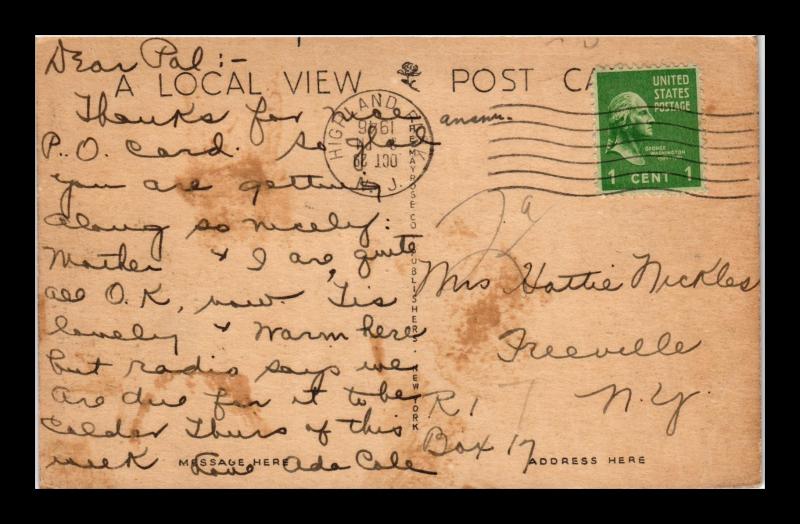 Dear Pal:-
A LOCAL VIEW POST CA
Thanks for nice
P.O. Card. So glad
you are getting
along so nicely:
Mother & I are quite
all O.K, now. 'Tis
lovely & warm here
but radio says we
are due for it to be
colder Thurs of this
week Love Ada Cole
MESSAGE HERE
THE MAYROSE CO. PUBLISHERS. NEW YORK
HIGHLAND PARK
1946
OCT 29
N. J.
answ.
UNITED
STATES
POSTAGE
GEORGE
WASHINGTON
1 CENT 1
Mrs Hattie Nickles
Freeville
R1 N.Y.
Box 17
ADDRESS HERE